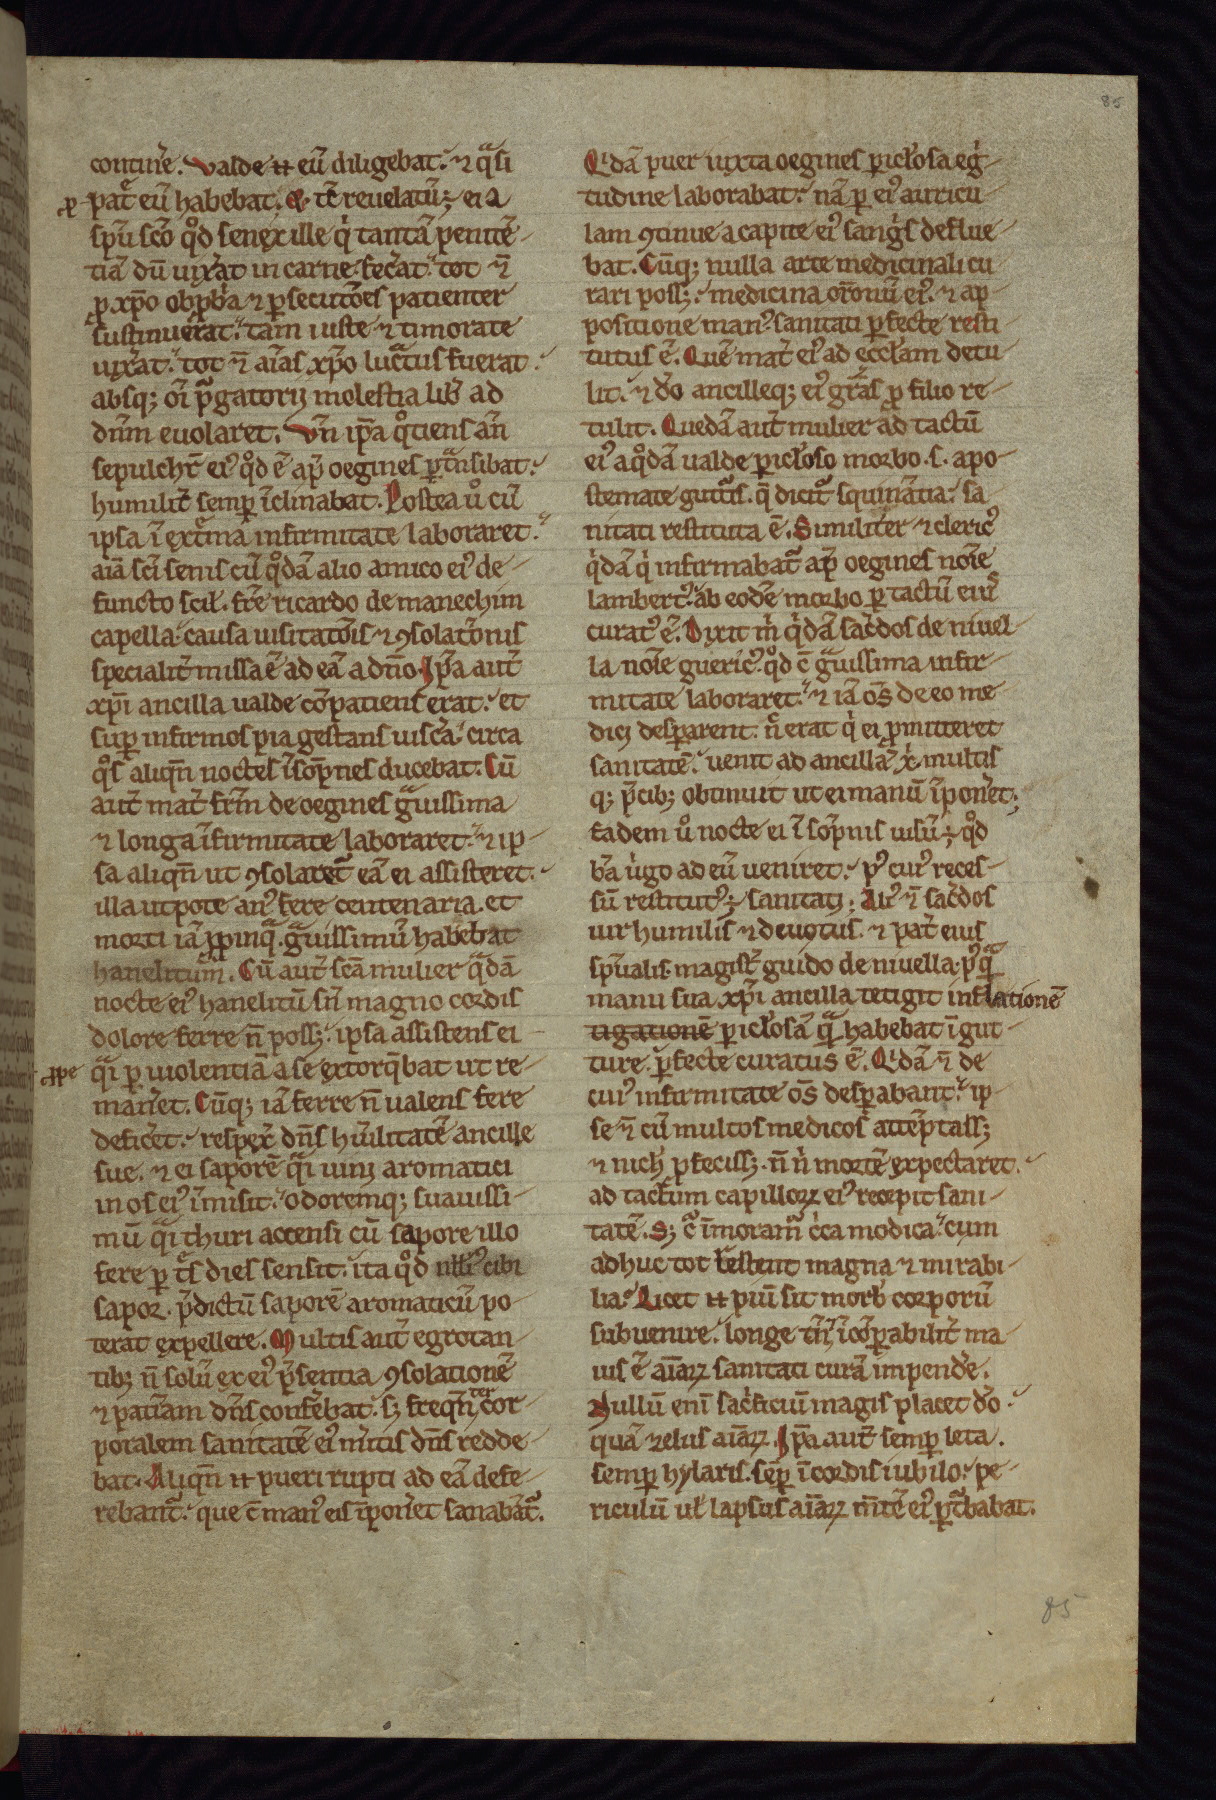 85
contin̾e. Valde ⁊t eũ diligebat.⁊ qͣsi
patͤ eũ habebat. ⁊ tc̃ reuelatũ; ei a
sp̃u sc̃o qͦd senex ille qͥ tantã penitẽ
tiã dũ uix̾at in carne fec̾at. tot eñ
ꝓ xp̃o obp̱b̾a ⁊ ꝑsecutões patienter
sustinuerat. tam iuste ⁊ timorate
uix̾at. tot eñ aĩas xp̃o lucͣtus fuerat.
absq; oĩ pͥgatorij molestia lib̾ ad
dñm euolaret. Vñ ip̃a qͦtiens añ
sepulchr̃ eiꝰ qͦd ẽ ap̃ oegines ꝑtͣnsibat.
humilit̾ semꝑ ĩclinabat. Postea u̾o cũ
ipsa ĩ extͤma infirmitate laboraret.
aĩa sc̃i senis cũ qͦdã alio amico eiꝰ de
functo scil. fr̃e ricardo de manechim
capella. causa uisitatõis ⁊ ꝯsolatõnis
specialit̾ missa ẽ ad eã a dño. Ip̃a aut̾
xp̃i ancilla ualde cõpatiens erat. et
suꝑ infirmos pia gestans uisc̾a. circa
qͦs aliqñ noctes ĩsõpnes ducebat. Cũ
aut̾ mat̾ fr̃m de oegines gͣuissima
⁊ longa ĩfirmitate laboraret. ⁊ ip
sa aliqñ ut ꝯsolaretͬ eã ei assisteret.
illa utpote anꝰ fere centenaria. et
morti iã ꝓpinqͣ. gͣuissimũ habebat
hanelitum. Cũ aut̾ sc̃a mulier qͣdã
nocte eiꝰ hanelitũ sñ magno cordis
dolore ferre ñ poss;. ipsa assistens ei
ꝓpe
qͣi ꝑ uiolentiã a se extorq̃bat ut re
man̾et. Cũq; iã ferre ñ ualens fere
defic̾et. respex̾ dñs hũilitatẽ ancille
sue. ⁊ ei saporẽ qͣi uini aromatici
in os eiꝰ ĩmisit. odoremq; suauissi
mũ qͣi thuri accensi cũ sapore illo
fere ꝑ tͤs dies sensit. ita qͦd nllꝰ cibi
sapor. p̃dictũ saporẽ aromaticũ po
terat expellere. Multis aut̾ egrotan
tib; ñ solũ ex eiꝰ p̃sentia ꝯsolationẽ
⁊ patiam dñs conferebat. s; freqñter cor
poralem sanitatẽ eiꝰ m̾itis dñs redde
bat. Aliqñ ⁊t pueri rupti ad eã defe
rebantͬ. que c̃ manꝰ eis ĩpon̾et sanabãtͬ.
Qͥdã puer iuxta oegines pericl̾osa eg̾
tudine laborabat. nã ꝑ eiꝰ auricu
lam ꝯtinue a capite eiꝰ sangͥs deflue
bat. Cũq; nulla arte medicinali cu
rari poss;. medicina orõnũ eiꝰ. ⁊ ap
positione manꝰ. sanitati ꝑfecte resti
tutus ẽ. Quẽ mat̾ eiꝰ ad eccl̾am detu
lit. ⁊ do ancilleq; eiꝰ gr̃as ꝓ filio re
tulit. Quedã aut̾ mulier ad tactũ
eiꝰ a qͦdã ualde ꝑicl̾oso morbo .s. apo
stemate gutt̾is. q̃ dicitͬ squinãtia. sa
nitati restituta ẽ. Similiter ⁊ clericꝰ
qͥdã qͥ infirmabatͬ ap̃ oegines noĩe
lambertꝰ. ab eodẽ morbo ꝑ tactũ eiusꝰ
curatꝰ ẽ. Dixit m̾ qͥdã sac̾dos de niuel
la noĩe guericꝰ. qͦd c̃ gͣuissima infir
mitate laboraret. ⁊ iã oẽs de eo me
dici desꝑarent. ñ erat qͥ ei ꝓmitteret
sanitatẽ. uenit ad ancillã xͥ. multis
q; p̃cib; obtinuit ut ei manũ ĩpon̾et.
Eadem u̾o nocte ei ĩ sõpnis uisũ; qͦd
b̃a uͥgo ad eũ ueniret. pꝰ cuiꝰ reces
sũ restitutꝰ; sanitati. Aliꝰ eñ sac̾dos
uir humilis ⁊ deuotus. ⁊ pat̾ eius
sp̃ualis. magist̾ guido de niuella. pꝰqͣ
manu sua xp̃i ancilla tetigit inflationẽ
tigationẽ pericl̾osã qͣ habebat ĩ gut
ture. ꝑfecte curatus ẽ. Qͥdã eñ de
cuiꝰ infirmitate oẽs desꝑabant. ip
se eñ cũ multos medicos attẽptass;
⁊ nich̾ ꝓfeciss;. ñ nͥ mortẽ expectaret.
ad tactum capillorꝝ eiꝰ recepit sani
tatẽ. S; cͬ ĩmoramͬ cͥca modica. cum
adhuc tot restent magna ⁊ mirabi
lia. Licet ⁊t piũ sit morb̾ corporũ
subuenire. longe tñ ĩcõparabilit̾ ma
ius ẽ aĩarꝝ sanitati curã impend̾e.
Nullũ enĩ sac̾ficiũ magis placet do.
quã zelus aĩarꝝ. Ip̃a aut̾ semꝑ leta.
semꝑ hylaris. sẽꝑ ĩ cordis iubilo. pe
riculũ ul̾ lapsus aĩarꝝ m̃tẽ eiꝰ ꝑtͬbabat.
85